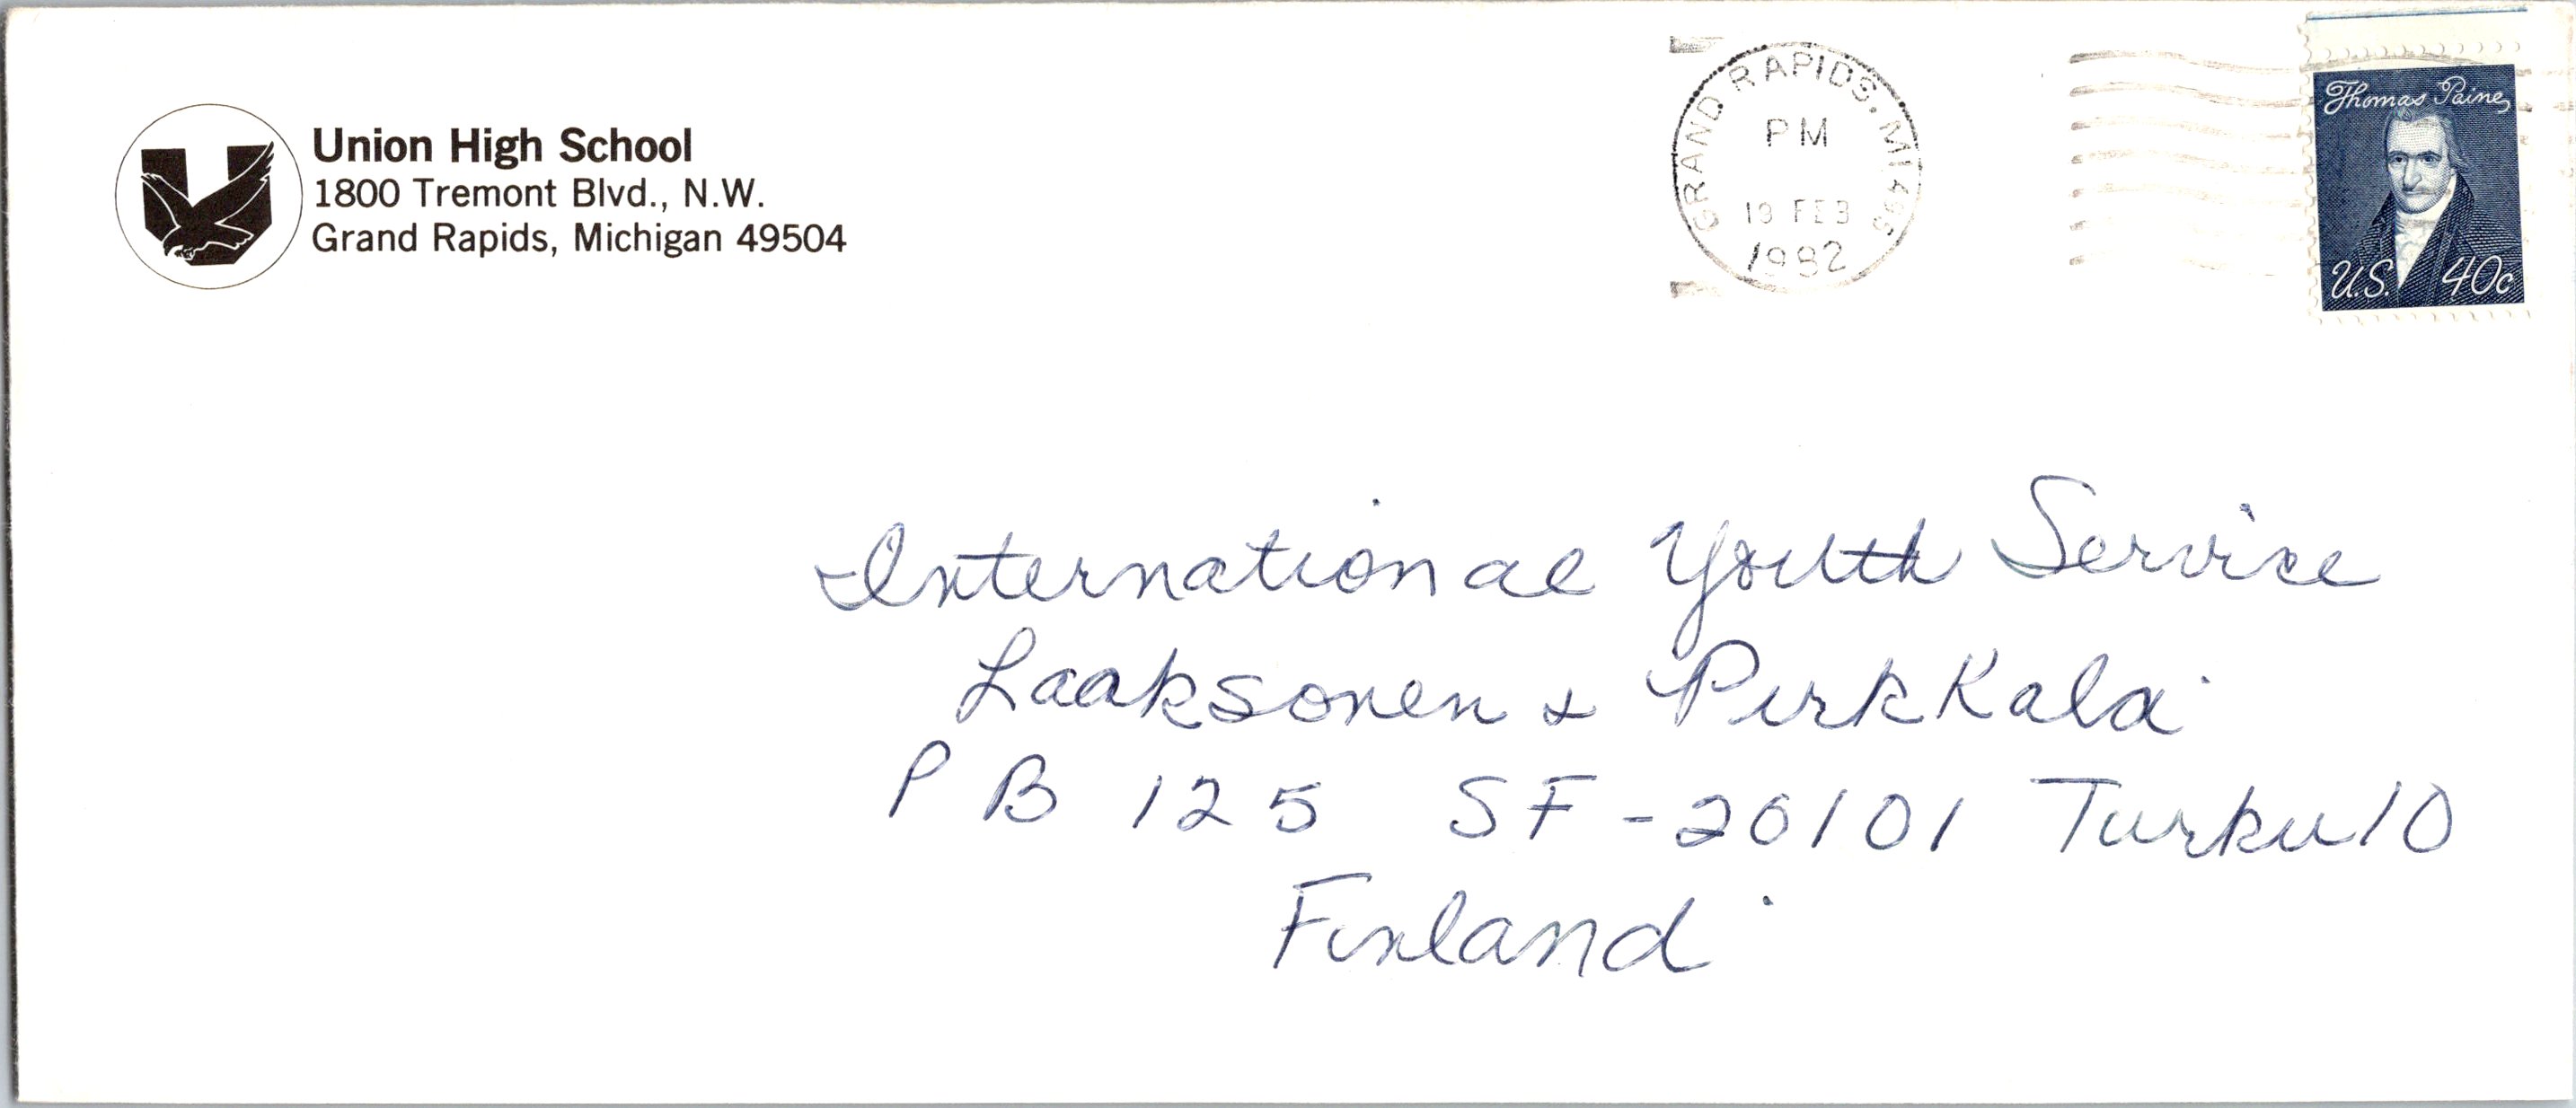 Union High School
1800 Tremont Blvd., N.W.
Grand Rapids, Michigan 49504
GRAND RAPIDS, MI 495
PM
FEB
1982
Thomas Paine
U.S. 40c
International Youth Service
Laaksonen & Pirkkala
P B 125 SF-20101 Turku 10
Finland